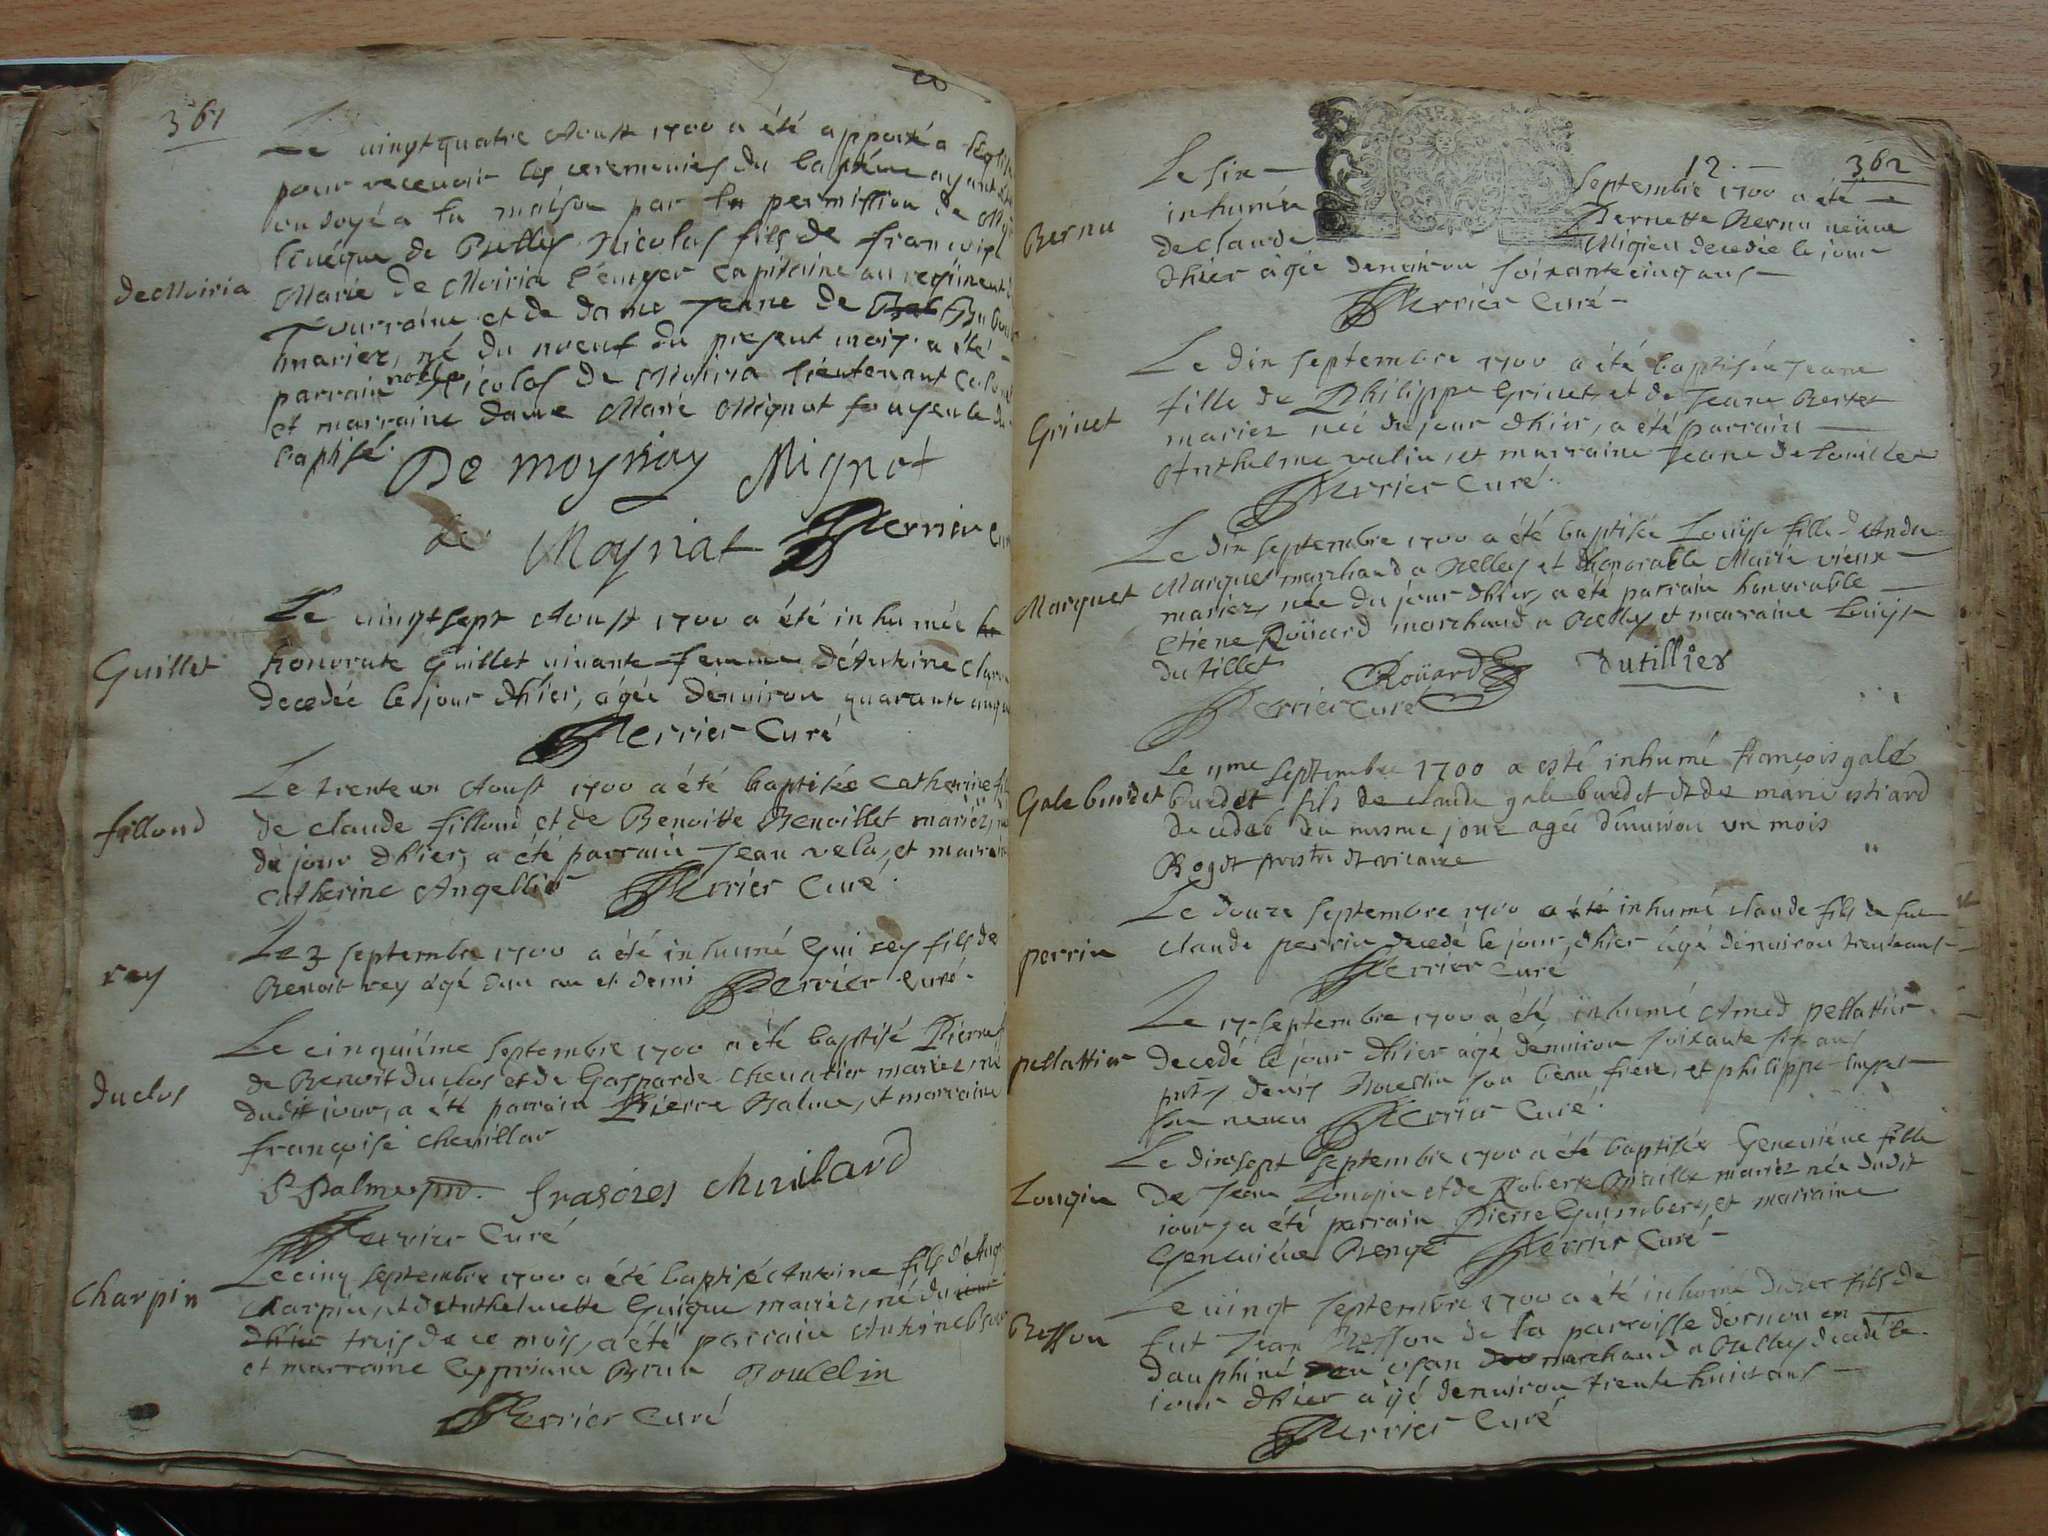 361
Le vingtquatre Aoust 1700 a été apporté a l'Eglise
pour recevoir les ceremonies du baptéme ayant été
ondoyé a la maison par la permission de Mgr
l'evéque de Belley Nicolas fils de françois
DeMoiria
Marie de Moiria Ecuyer Capitaine au regiment de
Tourraine et de dame Jeane de
mariez, né du noeuf du present mois a été
parrain noble Nicolas de Moiria Lieutenant Colonel
et marraine dame Marie Mignot
baptisé.
De moyriay Mignot
de Moyriat Perrier Curé
Le vingtsept Aoust 1700 a été inhumée
Guillet
honorate Guillet vivante femme d'Antoine
decedée le jour d'hier, agée d'environ quarante cinq
Perrier Curé
Le trente un Aoust 1700 a été baptisée Catherine
fillond
de claude fillond et de Benoitte Benoillet mariez,
du jour d'hier, a été parrain Jean vela, et marraine
Catherine Angellier Perrier Curé
Le 3 septembre 1700 a été inhumé Gui rey fils de
rey
Benoit rey agé d'un an et demi Perrier curé
Le cinquiéme septembre 1700 a été baptisé Pierre
duclos
de Benoit duclos et de Gasparde chevalier mariez, né
dudit jour, a été parrain Pierre Balme, et marraine
françoise chevillar
P Balme frasoies chevilard
Perrier Curé
Le cinq septembre 1700 a été baptisé Antoine fils d'
Charpin
charpin, et d'Anthelmette Guigue mariez, né du jour
d'hier trois de ce mois, a été parrain Antoine
et marraine Cypriane Brun Boucelin
Perrier Curé
12. 362
Le six septembre 1700 a été
Bernu
inhumée Pernette Bernu veuve
de claude Migieu decedée le jour
d'hier agée denviron soixante cinq ans
Perrier Curé
Le dix septembre 1700 a été baptisée Jeane
Grinet
fille de Philippe Grinet, et de Jeane Berter
mariez née du jour d'hier, a été parrain
Anthelme valin, et marraine Jeane de
Perrier Curé
Le dix septembre 1700 a été baptisée Louïse fille d'André
Marquet
Marquet marchand a Belley et d'honorable Marie vieux
mariez, née du jour d'hier, a été parrain honorable
Etiene Roüard marchand a Belley et marraine Louise
du tillet Roüard dutillier
Perrier Curé
Le 11me septembre 1700 a esté inhumé françois gale
Gale burdet
burdet fils de claude gale burdet et de marie
decedé du mesme jour agé d'environ un mois
Roget prestre et vicaire
Le douze septembre 1700 a été inhumé claude fils de fut
perrin
claude perrin decedé le jour d'hier agé d'environ trente ans
Perrier Curé
Le 17 septembre 1700 a été inhumé Amed pellattier
pellattier
decedé le jour d'hier agé denviron soixante six ans
pnts denis son beau frere, et philippe
son neveu Perrier Curé
Le dixsept septembre 1700 a été baptisée Genevieve fille
Longin
de Jean Longin et de Roberte mariez née dudit
jour, a été parrain Pierre Guimber, et marraine
Genevieve Perrier Curé
Le vingt septembre 1700 a été inhumé Didier fils de
Besson
fut Jean Besson de la parroisse d'ornon en
dauphiné marchand a Belley decedé le
jour d'hier agé denviron trente huict ans
Perrier Curé